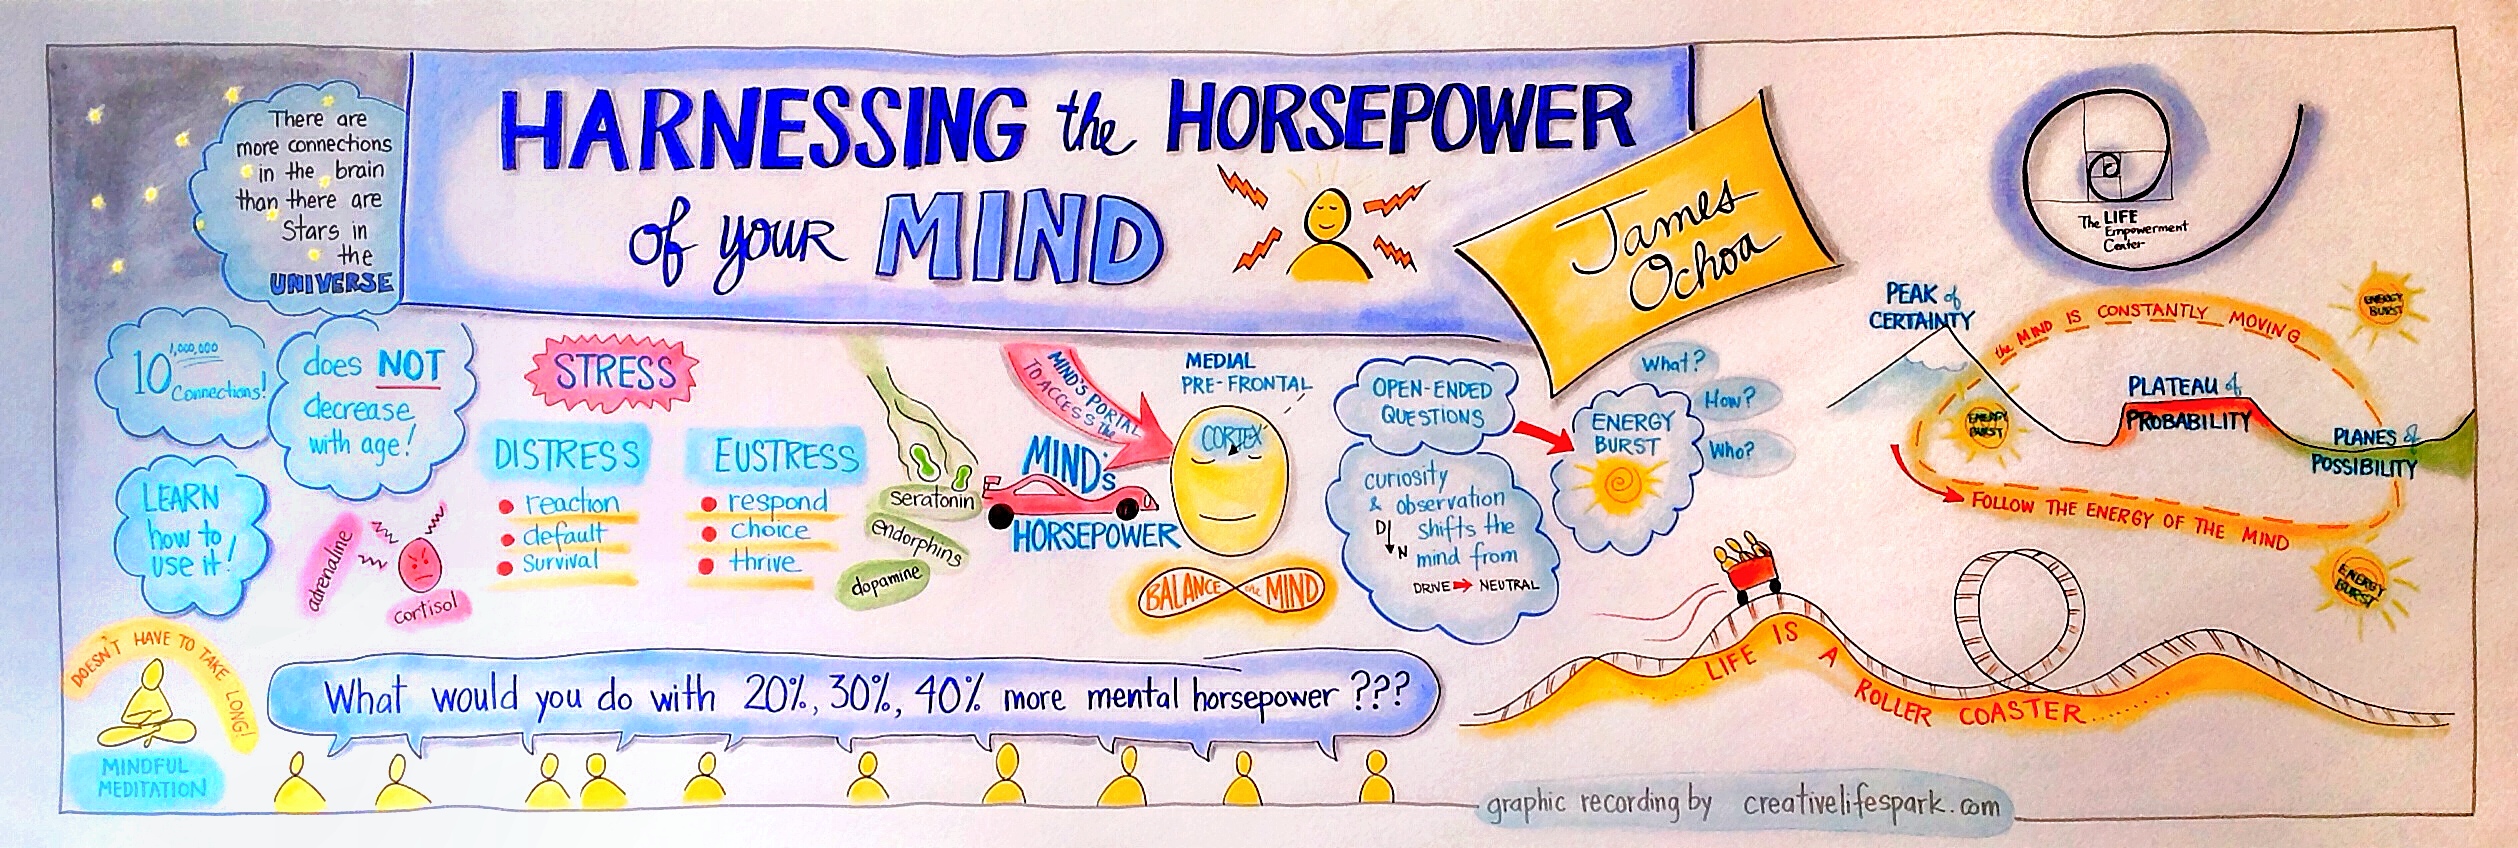 There are
more connections
in the brain
than there are
Stars in
the
UNIVERSE
HARNESSING the HORSEPOWER
of your MIND
James
Ochoa
The LIFE
Empowerment
Center
10 1,000,000
Connections!
does NOT
decrease
with age!
LEARN
how to
use it!
STRESS
DISTRESS
reaction
default
Survival
adrenaline
cortisol
EUSTRESS
respond
choice
thrive
seratonin
endorphins
dopamine
MIND'S PORTAL
TO ACCESS the
MIND's
HORSEPOWER
MEDIAL
PRE-FRONTAL
CORTEX
BALANCE the MIND
OPEN-ENDED
QUESTIONS
curiosity
& observation
shifts the
mind from
D
N
DRIVE → NEUTRAL
ENERGY
BURST
What?
How?
Who?
PEAK of
CERTAINTY
the MIND IS CONSTANTLY MOVING
ENERGY
BURST
ENERGY
BURST
PLATEAU of
PROBABILITY
PLANES of
POSSIBILITY
FOLLOW THE ENERGY OF THE MIND
ENERGY
BURST
LIFE IS A ROLLER COASTER......
DOESN'T HAVE TO TAKE LONG!
MINDFUL
MEDITATION
What would you do with 20%, 30%, 40% more mental horsepower ???
graphic recording by creativelifespark.com